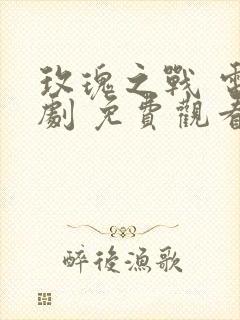 玫瑰之戰
劇 免費觀
醉後漁歌